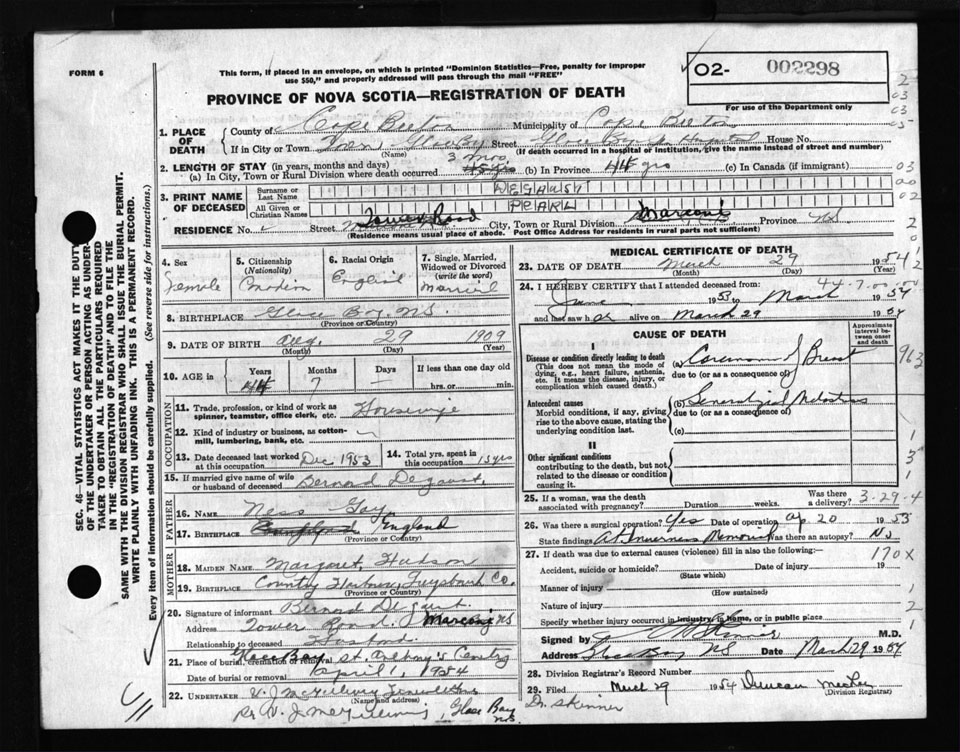 FORM 6
This form, if placed in an envelope, on which is printed "Dominion Statistics—Free, penalty for improper
use $50," and properly addressed will pass through the mail "FREE"
O2- 002298
For use of the Department only
PROVINCE OF NOVA SCOTIA—REGISTRATION OF DEATH
1. PLACE OF DEATH
County of Cape Breton Municipality of Cape Breton
If in City or Town Town Glace Bay Street Glace Bay Hospital House No.
(Name) (If death occurred in a hospital or institution, give the name instead of street and number)
2. LENGTH OF STAY (in years, months and days)
(a) In City, Town or Rural Division where death occurred 3 mos (b) In Province 44 yrs (c) In Canada (if immigrant)
3. PRINT NAME OF DECEASED
Surname or Last Name DEGAUST
All Given or Christian Names PEARL
RESIDENCE No. Street Tower Road City, Town or Rural Division Marconi Province NS
(Residence means usual place of abode. Post Office Address for residents in rural parts not sufficient)
4. Sex Female
5. Citizenship (Nationality) Canadian
6. Racial Origin English
7. Single, Married, Widowed or Divorced (write the word) Married
8. BIRTHPLACE Glace Bay, N.S.
(Province or Country)
9. DATE OF BIRTH Aug. 29 1909
(Month) (Day) (Year)
10. AGE in Years 44 Months 7 Days — If less than one day old
hrs. or min.
OCCUPATION
11. Trade, profession, or kind of work as spinner, teamster, office clerk, etc. Housewife
12. Kind of industry or business, as cotton-mill, lumbering, bank, etc.
13. Date deceased last worked at this occupation Dec 1953
14. Total yrs. spent in this occupation 15 yrs
15. If married give name of wife or husband of deceased Bernard Degaust
FATHER
16. Name Ness Gay
17. Birthplace England
(Province or Country)
MOTHER
18. MAIDEN NAME Margaret Hudson
19. BIRTHPLACE Country Harbour, Guysboro Co.
(Province or Country)
20. Signature of informant Bernard De gaust
Address Tower Road, Marconi NS
Relationship to deceased Husband
21. Place of burial, cremation or removal Glace Bay St. Anthony's Cemetery
Date of burial or removal April 1, 1954
22. UNDERTAKER V. J. McGillivray
(Name and address)
Per V. J. McGillivray, Glace Bay N.S.
MEDICAL CERTIFICATE OF DEATH
23. DATE OF DEATH March 29 1954
(Month) (Day) (Year)
44-7-00-
24. I HEREBY CERTIFY that I attended deceased from:
June 1953 to March 1954
and last saw her alive on March 29 1954
CAUSE OF DEATH
Approximate interval between onset and death
I
Disease or condition directly leading to death
(This does not mean the mode of dying, e.g., heart failure, asthenia, etc. It means the disease, injury, or complication which caused death.)
(a) Carcinoma of Breast
due to (or as a consequence of)
Antecedent causes
Morbid conditions, if any, giving rise to the above cause, stating the underlying condition last.
(b) Generalized Metastases
due to (or as a consequence of)
(c)
II
Other significant conditions
contributing to the death, but not related to the disease or condition causing it.
25. If a woman, was the death associated with pregnancy? Duration weeks. Was there a delivery? 3-29-4
26. Was there surgical operation? Yes Date of operation Ap. 20 1953
State findings At Inverness Memorial Was there an autopsy? No
27. If death was due to external causes (violence) fill in also the following:— 170X
Accident, suicide or homicide? Date of injury 19
(State which)
Manner of injury
(How sustained)
Nature of injury
Specify whether injury occurred in industry, in home, or in public place
Signed by M.D.
Address Glace Bay NS Date March 29 1954
28. Division Registrar's Record Number
29. Filed March 29 1954 Duncan
(Division Registrar)
Dr. Skinner
SEC. 46—VITAL STATISTICS ACT MAKES IT THE DUTY
OF THE UNDERTAKER OR PERSON ACTING AS UNDERTAKER
TO OBTAIN ALL THE PARTICULARS REQUIRED
IN THE "REGISTRATION OF DEATH" AND TO FILE THE
SAME WITH THE DIVISION REGISTRAR WHO SHALL ISSUE THE BURIAL PERMIT.
WRITE PLAINLY WITH UNFADING INK. THIS IS A PERMANENT RECORD.
Every item of information should be carefully supplied. (See reverse side for instructions.)